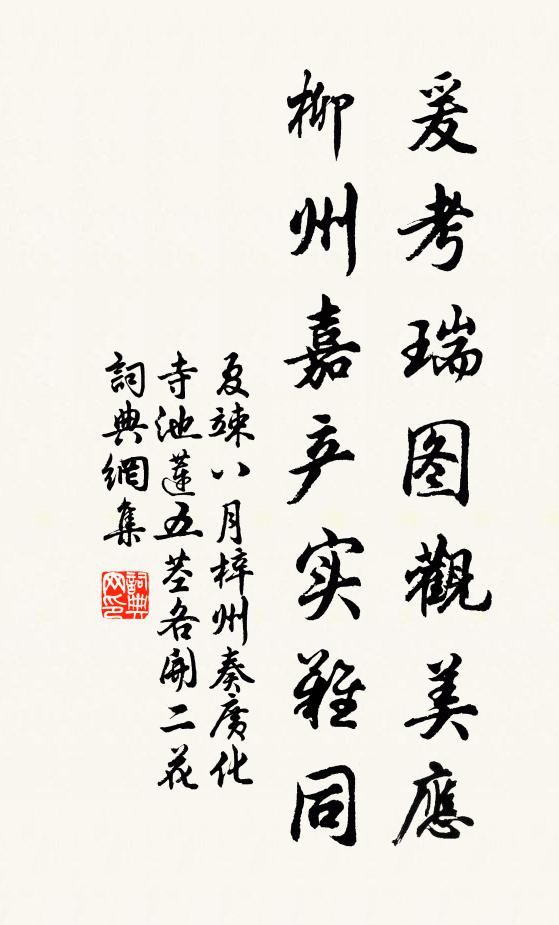 爰考瑞图觀美應
柳州嘉产实難同
夏竦八月梓州奏廣化
寺池蓮五茎各開二花
詞典網集
詞典
网印